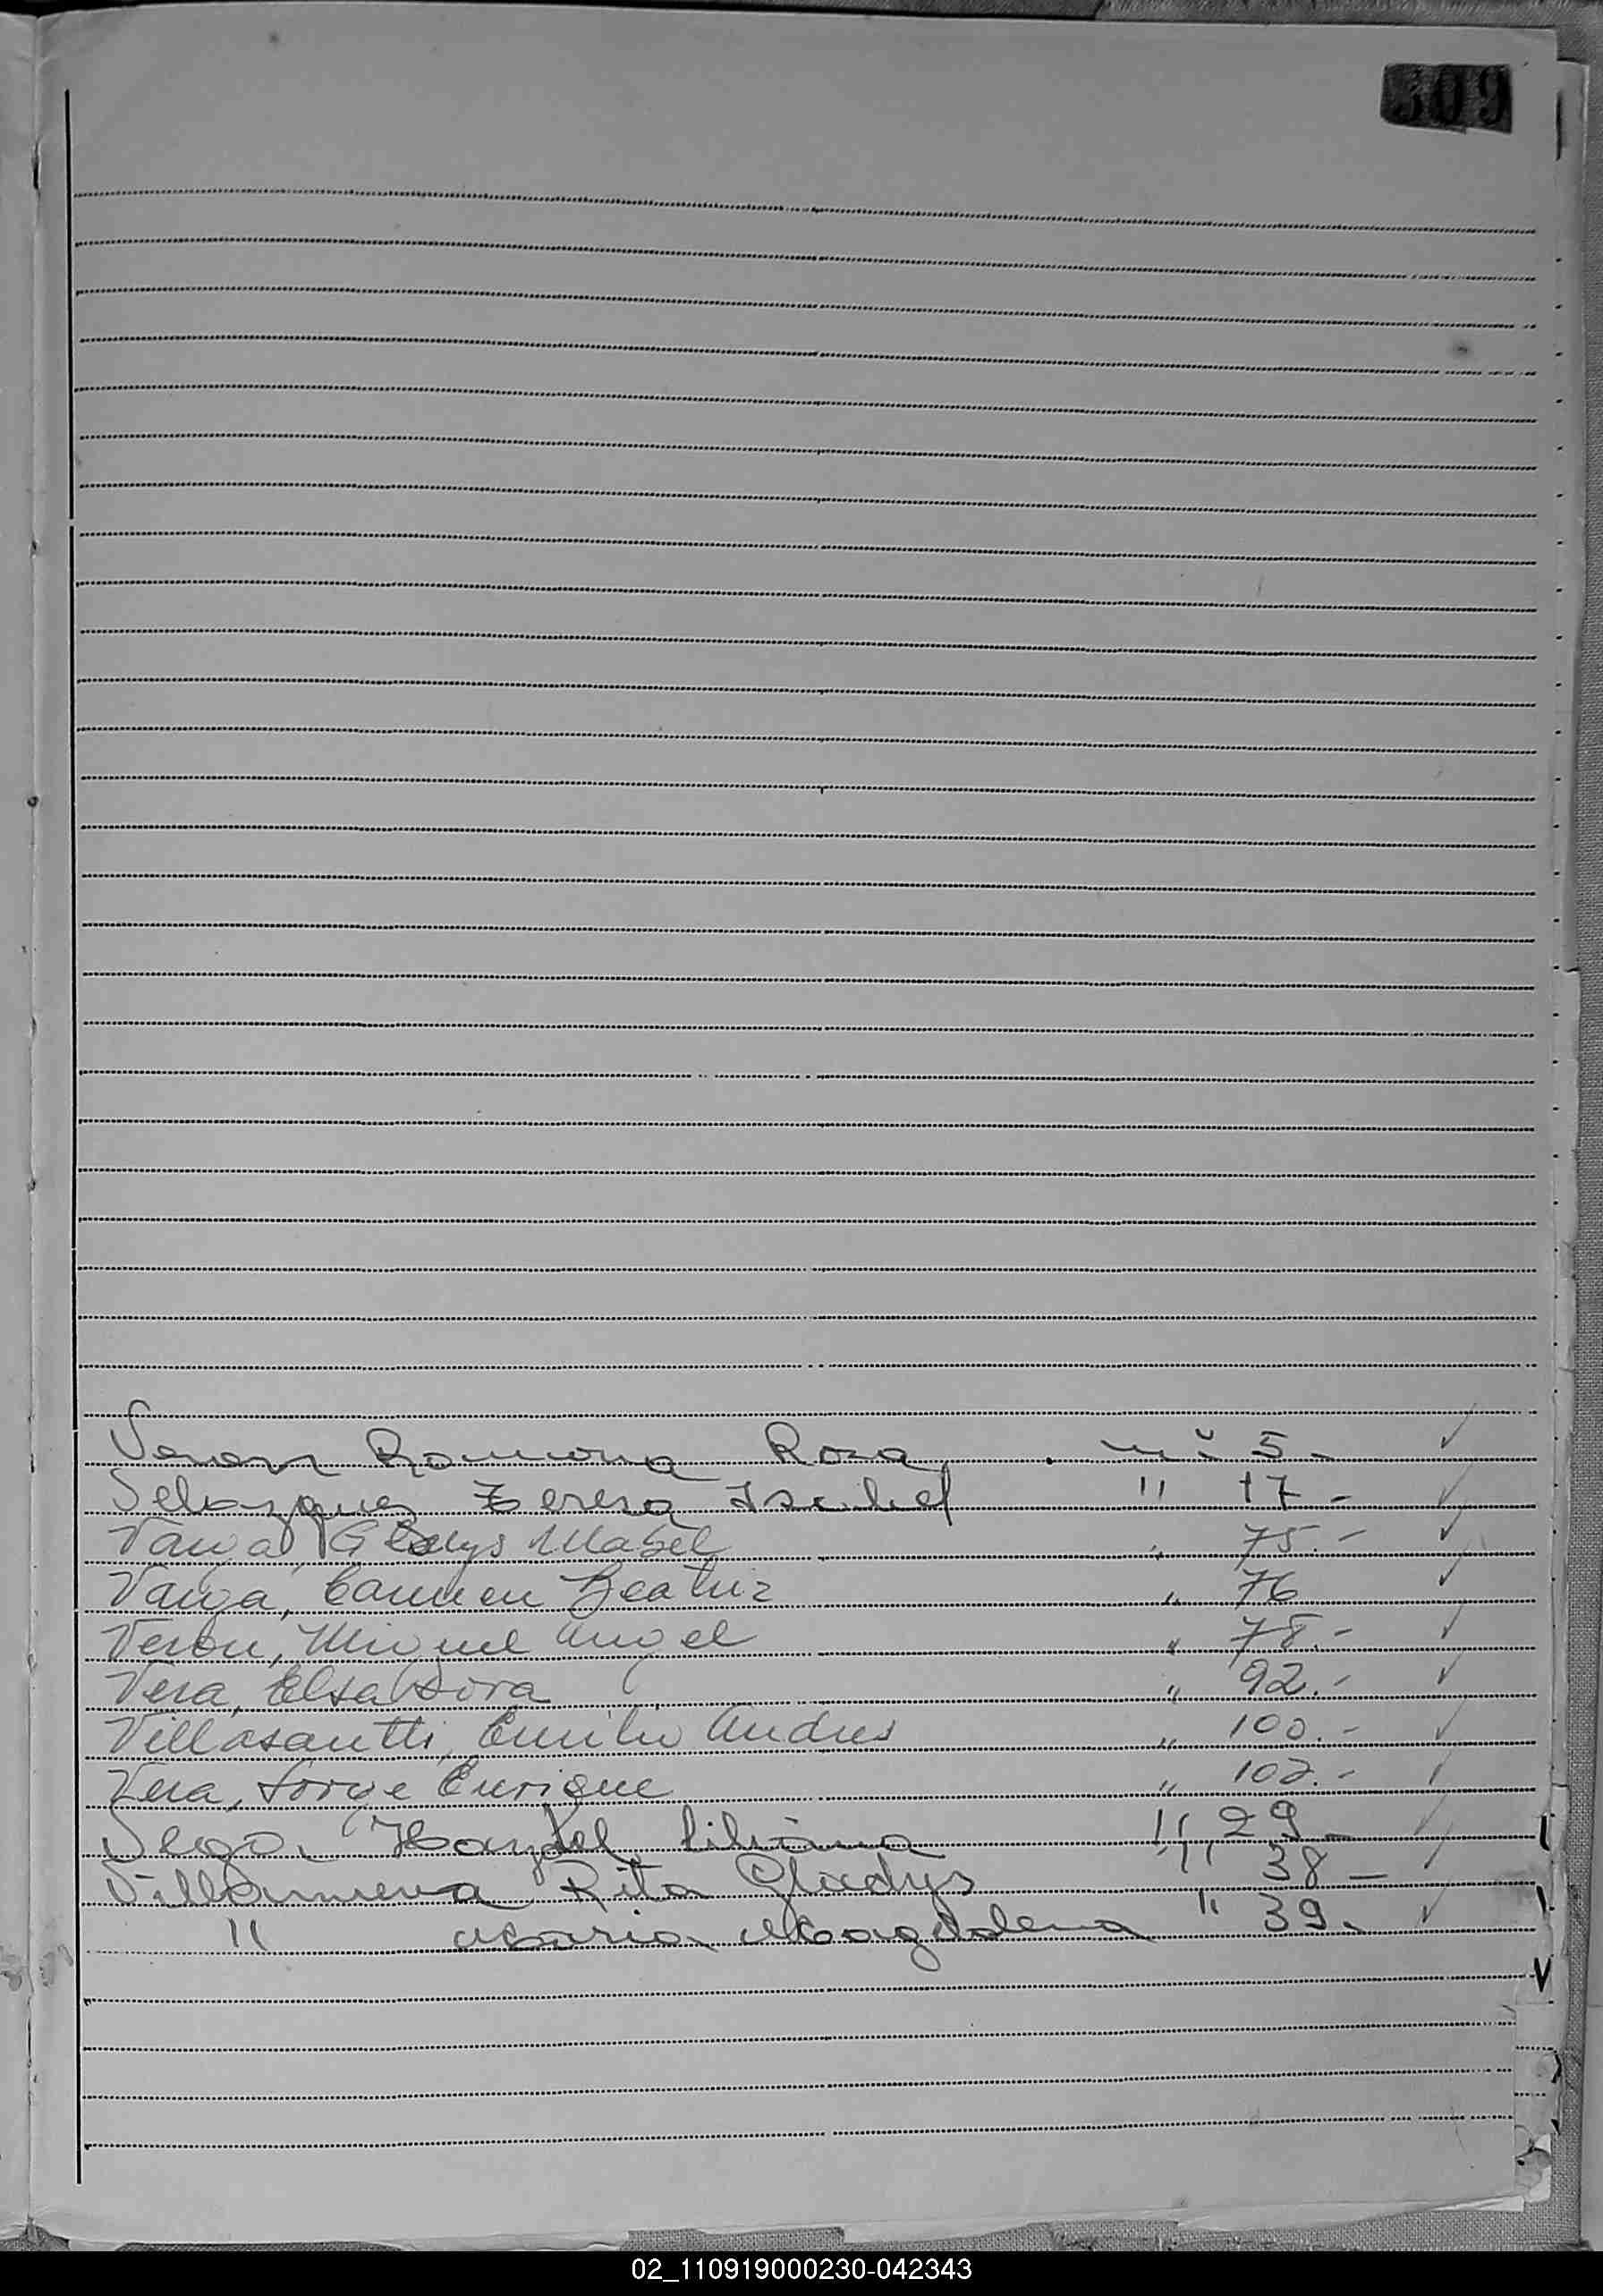 309
Veron Ramona Rosa nº 5 -
Velazquez Teresa Isabel " 17 -
Varga, Gladys Mabel " 75.-
Varga, Carmen Beatriz " 76
Veron, Miguel Angel " 78.-
Vera, Elsa Dora " 92.-
Villasantti, Emilio Andres " 100.-
Vera, Jorge Enrique " 102.-
Vega, Liliana " 29 -
Villanueva Rita Gladys " 38 -
" Maria Magdalena " 39.
02_110919000230-042343